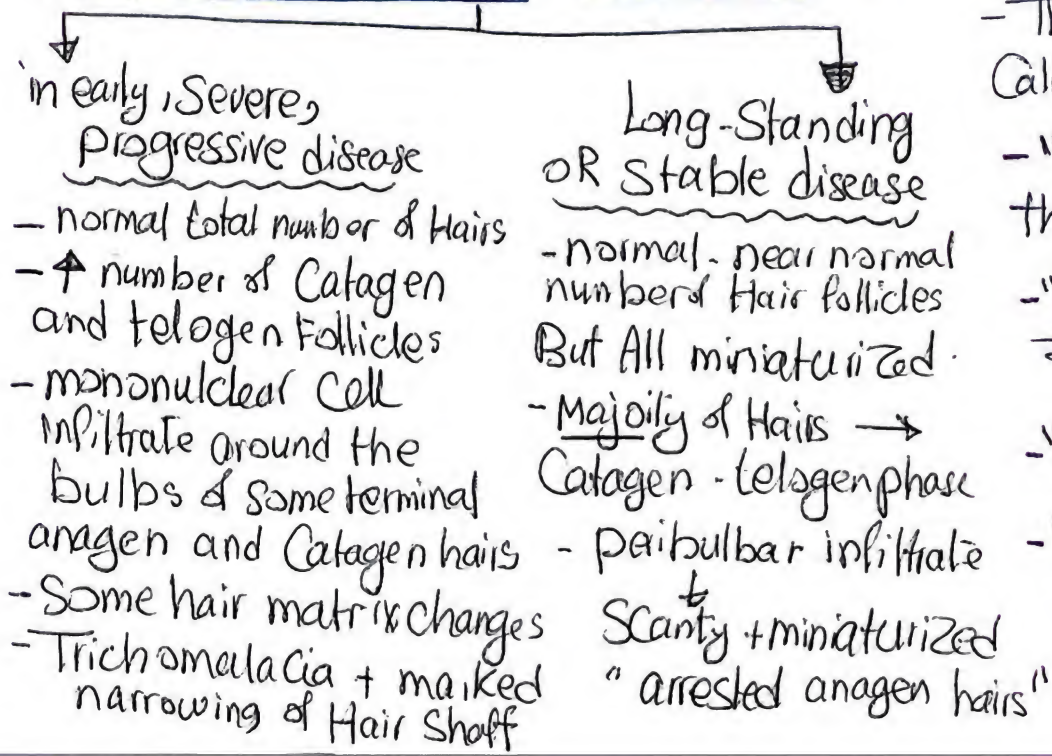 in early, Severe,
progressive disease
- normal total number of Hairs
- ↑ number of Catagen
and telogen Follicles
- mononulclear Cell
infiltrate around the
bulbs of some terminal
anagen and Catagen hairs
- Some hair matrix changes
- Trichomalacia + marked
narrowing of Hair Shaft
Long-Standing
OR Stable disease
- normal - near normal
number of Hair follicles
But All miniaturized.
- Majority of Hairs →
Catagen - telogen phase
- peribulbar infiltrate
Scanty + miniaturized
"arrested anagen hairs"